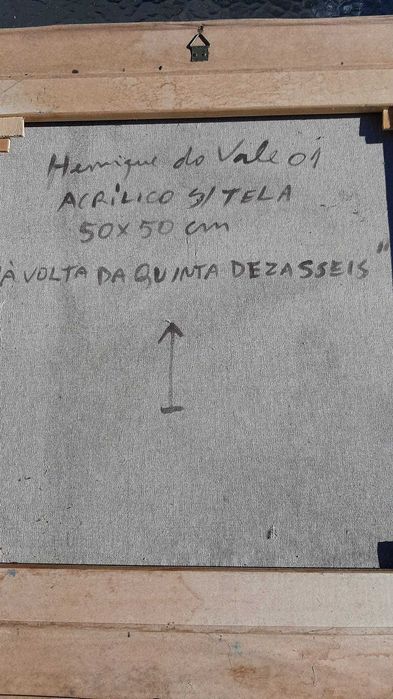 Henrique do Vale 01
ACRÍLICO S/TELA
50x50 cm
À VOLTA DA QUINTA DEZASSEIS"